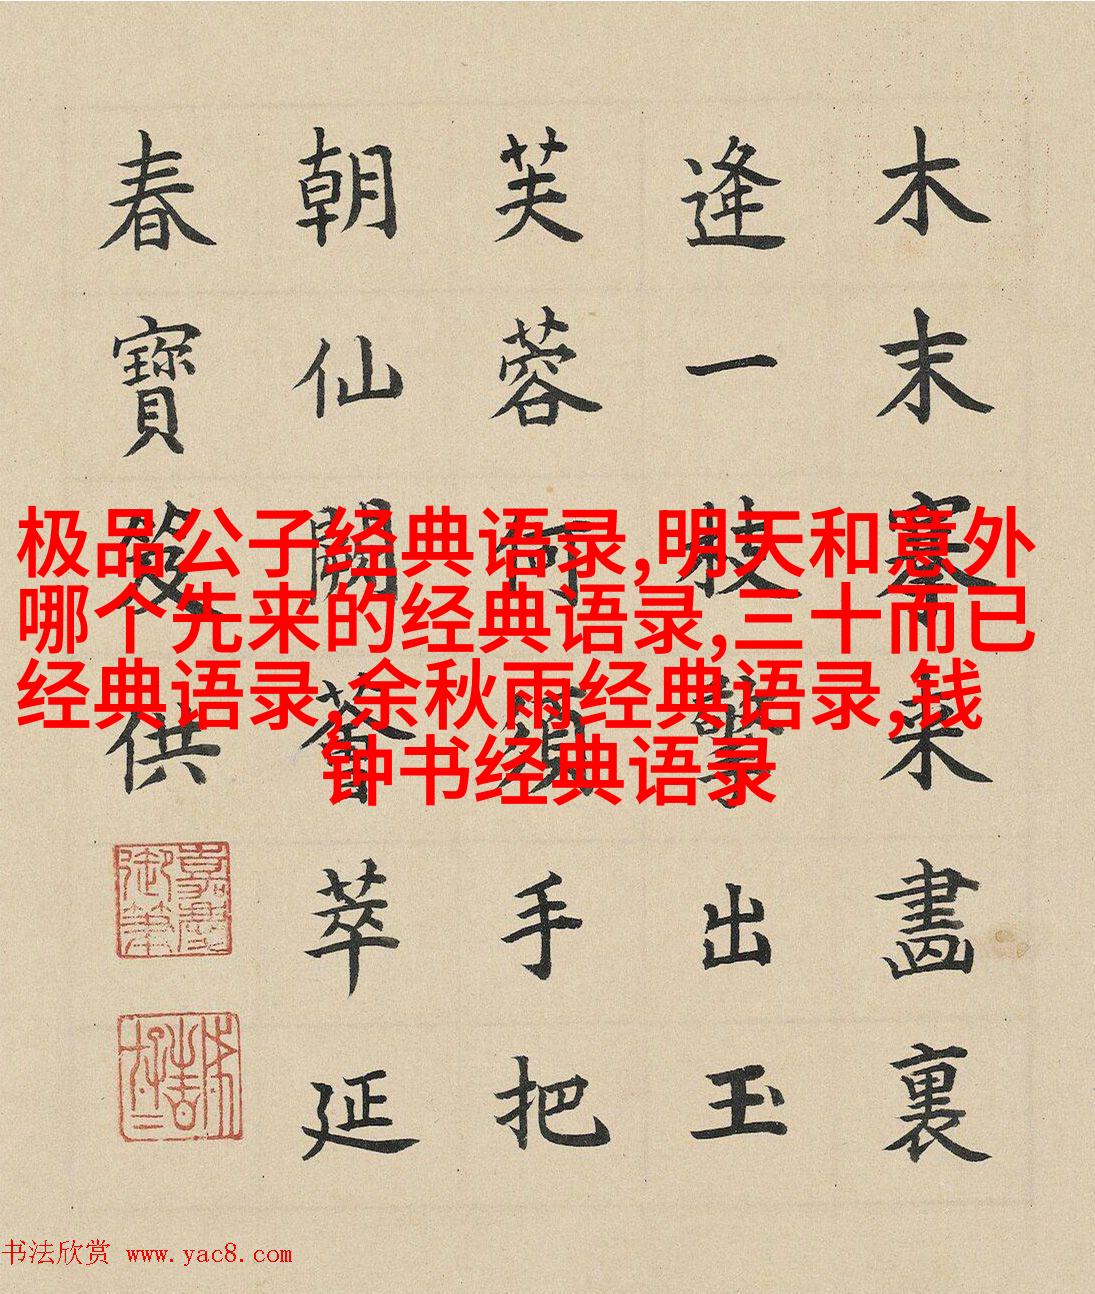 木末搴来畫裏
逢一枝擎出玉
芙蓉何須手把
朝仙闕薈萃延
春寶笈供
嘉慶御筆
极品公子经典语录,明天和意外
哪个先来的经典语录,三十而已
经典语录,余秋雨经典语录,钱
钟书经典语录
书法欣赏 www.yac8.com